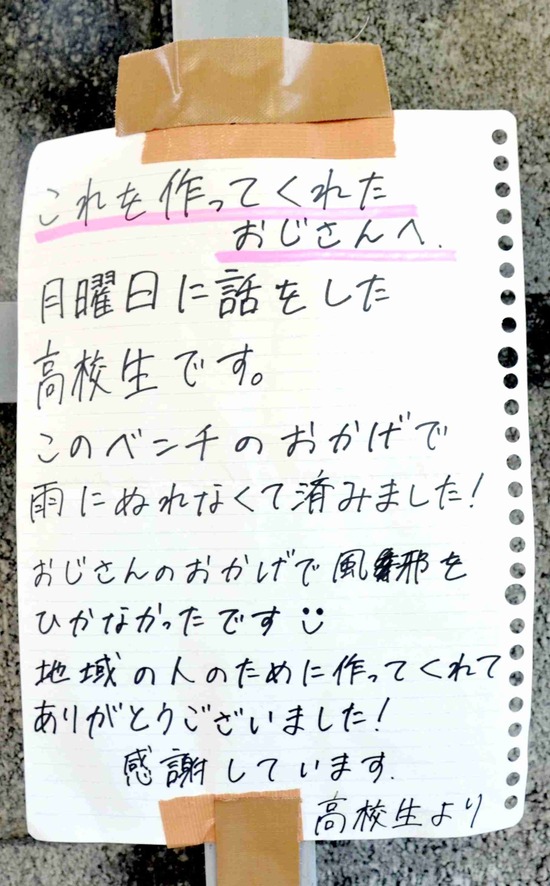 これを作ってくれた
おじさんへ.
月曜日に話をした
高校生です。
このベンチのおかげで
雨にぬれなくて済みました!
おじさんのおかげで風邪を
ひかなかったです
地域の人のために作ってくれて
ありがとうございました!
感謝しています.
高校生より